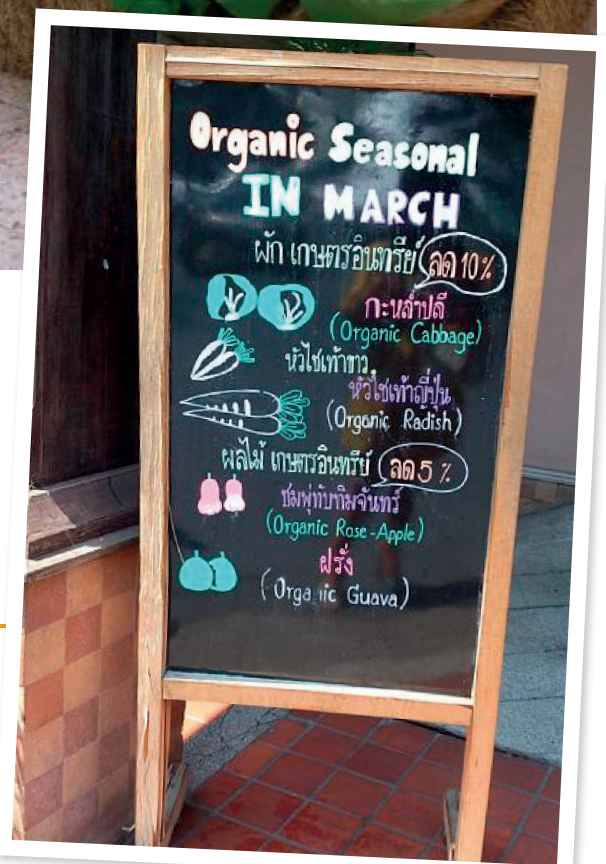 Organic Seasonal
IN MARCH
ผัก เกษตรอินทรีย์ ลด 10%
กะหล่ำปลี
(Organic Cabbage)
หัวไชเท้าขาว,
หัวไชเท้าญี่ปุ่น
(Organic Radish)
ผลไม้ เกษตรอินทรีย์ ลด 5 %
ชมพู่ทับทิมจันทร์
(Organic Rose-Apple)
ฝรั่ง
(Orga ic Guava)